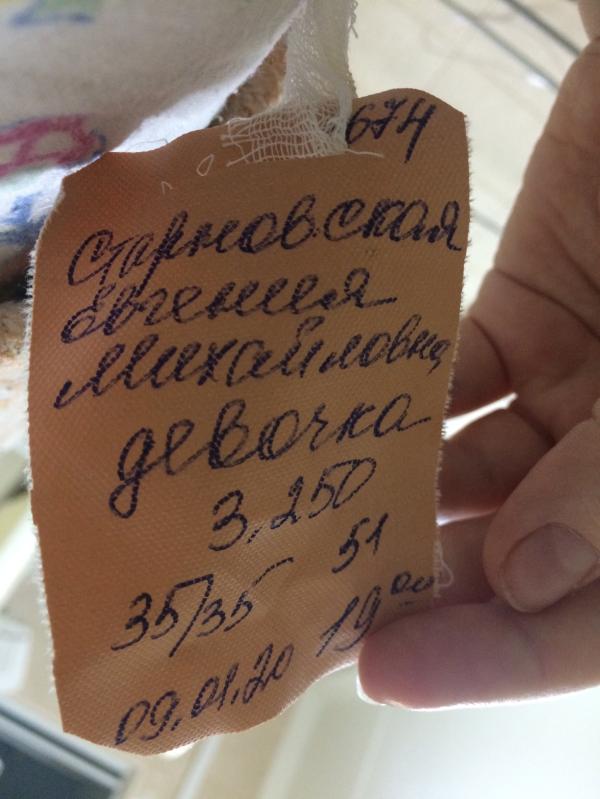 674
Старновская
Евгения
Михайловна
девочка
3,250
35/35 51
09.01.20 19⁰⁰